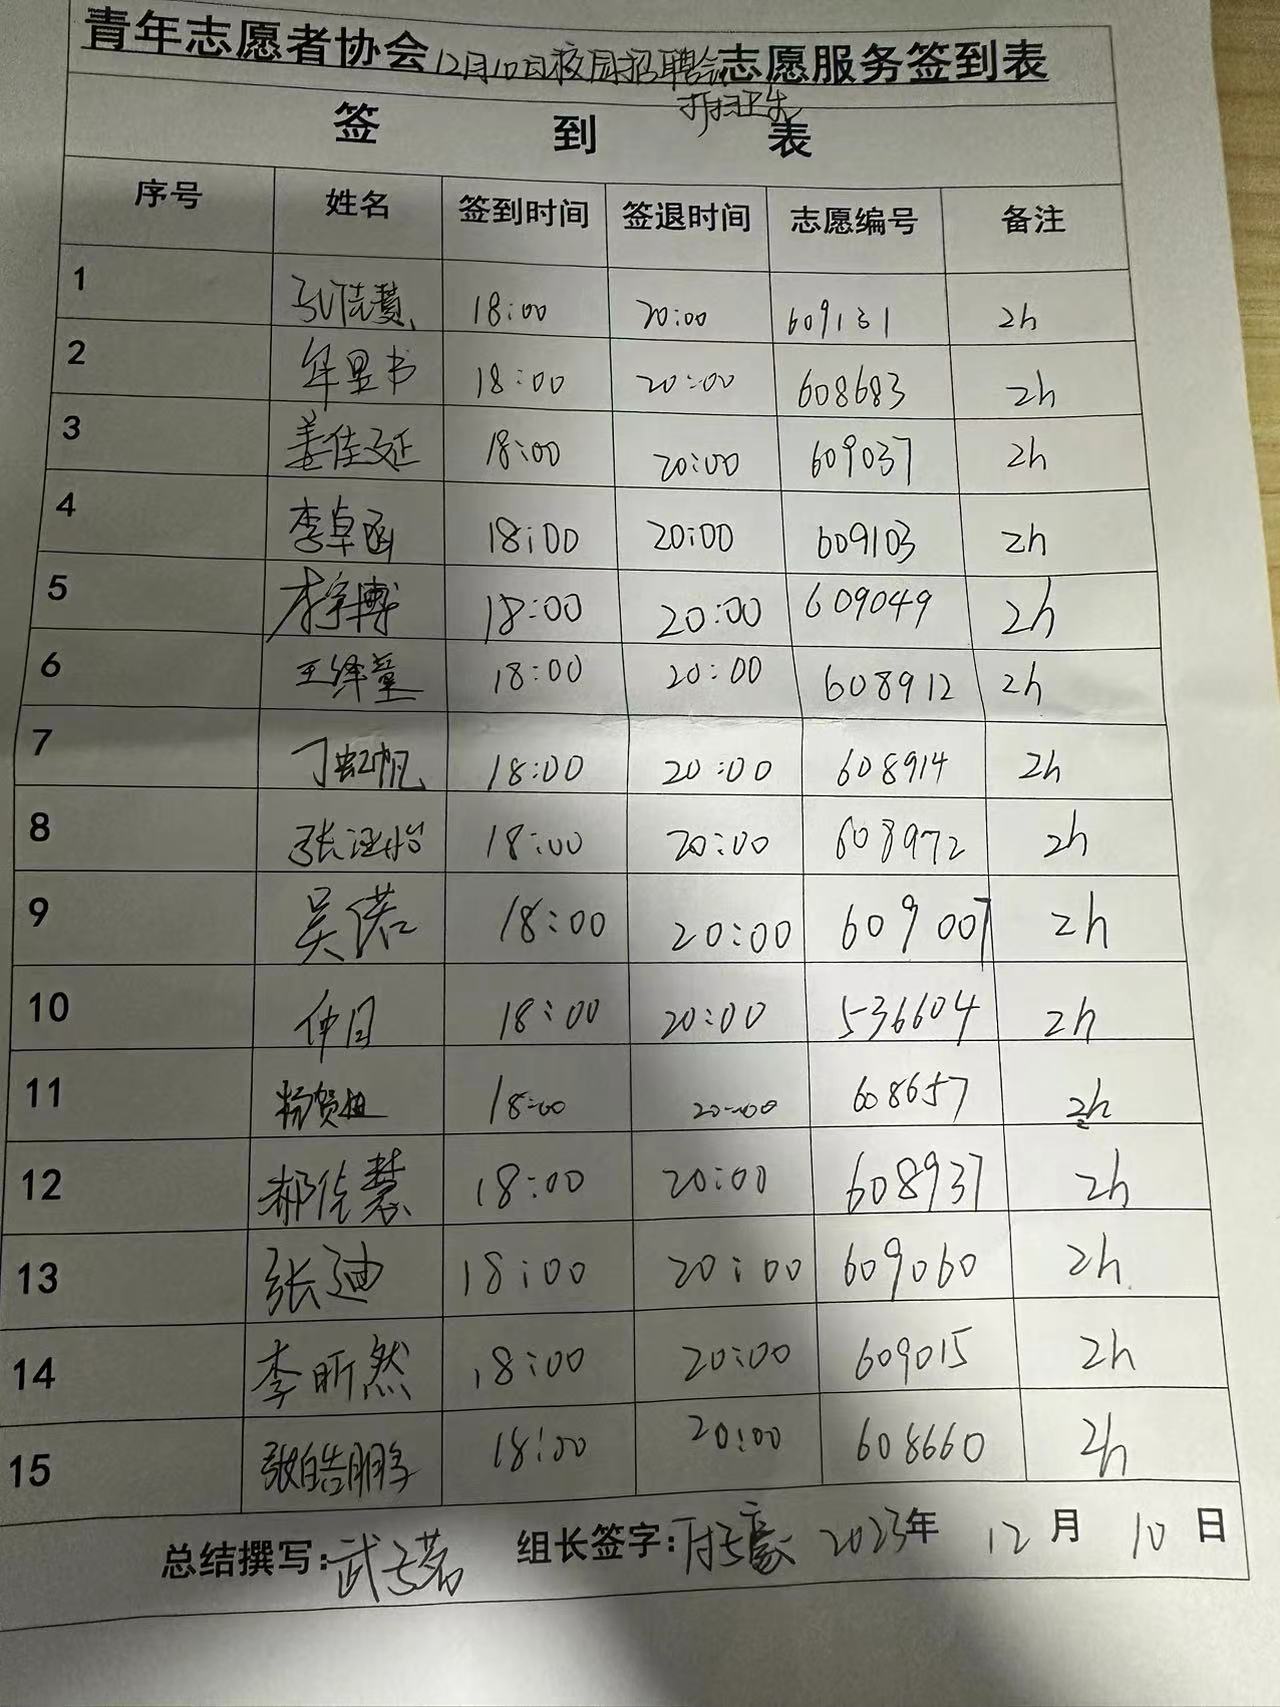 青年志愿者协会12月10日校园招聘会志愿服务签到表
打扫卫生
签 到 表
序号 姓名 签到时间 签退时间 志愿编号 备注
1 18:00 20:00 609131 2h
2 18:00 20:00 608683 2h
3 姜佳延 18:00 20:00 609037 2h
4 李卓函 18:00 20:00 609103 2h
5 李宇博 18:00 20:00 609049 2h
6 王绎童 18:00 20:00 608912 2h
7 丁虹帆 18:00 20:00 608914 2h
8 张 18:00 20:00 608972 2h
9 吴偌 18:00 20:00 609007 2h
10 仲目 18:00 20:00 536604 2h
11 杨贺 18:00 20:00 608657 2h
12 郝佳慧 18:00 20:00 608937 2h
13 张迪 18:00 20:00 609060 2h
14 李昕然 18:00 20:00 609015 2h
15 张皓鹏 18:00 20:00 608660 2h
总结撰写:武子茗 组长签字: 2023年 12 月 10 日